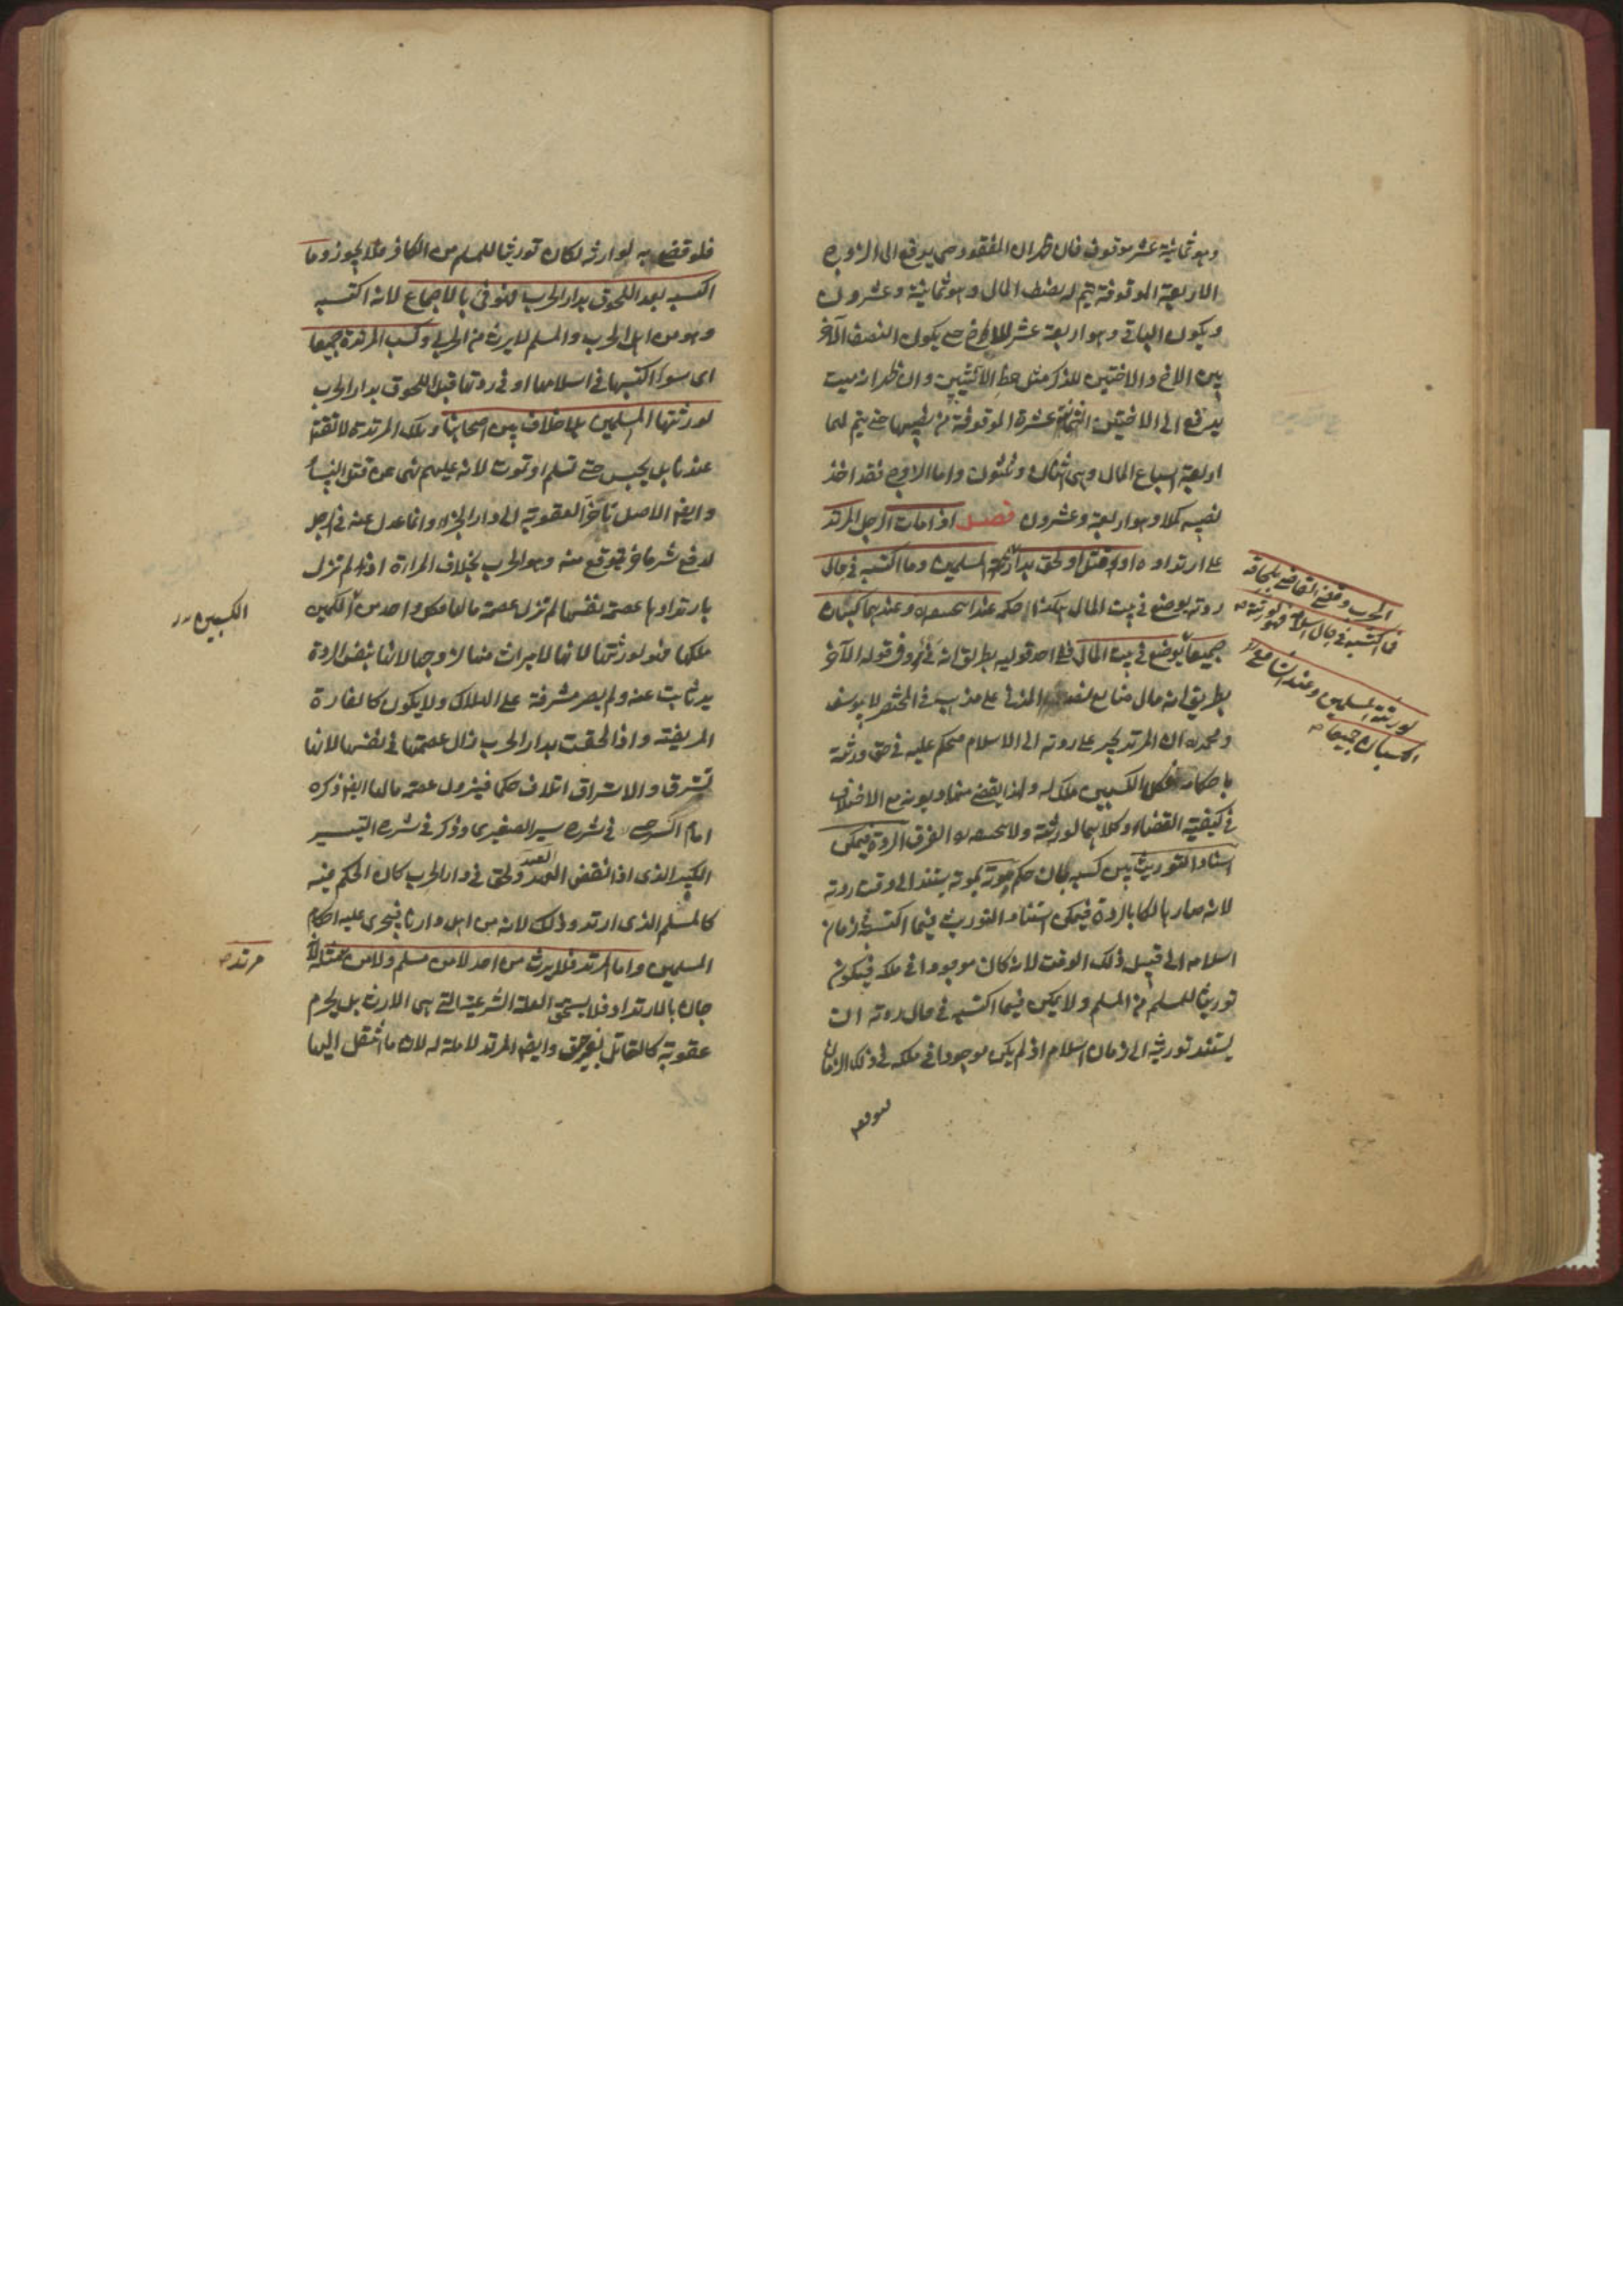 وهو ثمانية عشر موقوف فان ظهر ان المفقود حي يدفع الى الزوج
الاربعة الموقوفة ليتم له نصف المال وهو ثمانية وعشرون
ويكون الباقي وهو اربعة عشر للاخ حتى يكون النصف الآخر
بين الاخ والاختين للذكر مثل حظ الانثيين وان ظهر انه ميت
يدفع الى الاختين الثمانية عشرة الموقوفة من نصيبها حتى يتم لهما
اربعة اسباع المال وهي اثنان وثلثون واما الزوج فقد اخذ
نصيبه كملا وهو اربعة وعشرون فصل اذا مات الرجل المرتد
على ارتداده او قتل او لحق بدار المسلمين وما اكتسبه في حال
ردته يوضع في بيت المال هكذا حكمه عند وعندهما الكسبان
جميعا يوضع في بيت المال ففي احد قوليه بطريق انه فيء وفي قوله الآخر
بطريق انه مال ضايع المزني على مذهب في المختصر لابي يوسف
ومحمد ان المرتد يجبر على رده الى الاسلام فيحكم عليه في حق ورثته
باحكامه فكلا الكسبين ملك له ولهذا يقضى منهما ديونه مع الاختلاف
في كيفية القضاء وكلاهما لورثته ولا الفرق الردة فيمكن
اسناد التوريث بين كسبيه فان حكم موته بموته يستند الى وقت ردته
لانه صار هالكا بالردة فيمكن استناد التوريث فيما اكتسبه في زمان
اسلامه الى قبيل ذلك الوقت لانه كان موجودا في ملكه فيكون
توريثا للمسلم من المسلم ولا يمكن فيما اكتسبه في حال ردته ان
يستند توريثه الى زمان اسلام اذ لم يكن موجودا في ملكه في ذلك الزمان
الحرب وقضى القاضي بلحاقه
فما اكتسبه في حال اسلامه فهو لورثته
لورثته المسلمين وعند الشافعي
الكسبان جميعا
فلو قضى به لوارثه لكان توريثا للمسلم من الكافر فلا يجوز وما
اكتسبه بعد اللحوق بدار الحرب فهو فيء بالاجماع لانه اكتسبه
وهو من اهل الحرب والمسلم لا يرث من الحربي وكسب المرتدة جميعا
اى سواء اكتسبها في اسلامها او في ردتها قبل اللحوق بدار الحرب
لورثتها المسلمين بلا خلاف بين اصحابنا وتلك المرتدة لا تقتل
عندنا بل يحبس حتى تسلم او تموت لانه عليه السلام نهى عن قتل النساء
وايضا الاصل تأخر العقوبة الى دار الجزاء وانما عدل عنه في الرجل
لدفع شر ما يتوقع منه وهو الحرب بخلاف المرأة اذ لم تزل
بارتدادها عصمة نفسها لم تزل عصمة مالها فكل واحد من الكسبين
ملكها فهو لورثتها الا انها لا ميراث منها لزوجها لانها بنفس الردة
بدت عنه ولم يصر مشرفة على الهلاك ولا يكون كالفارة
المريضة واذا لحقت بدار الحرب زال عصمتها في نفسها لانها
تسترق والاسترقاق اتلاف حكما فيزول عصمة مالها ايضا ذكره
امام السرخسي في شرح سير الصغير وذكر في شرح السير
الكبير الذى اذا نقض العهد ولحق في دار الحرب كان الحكم فيه
كالمسلم الذى ارتد وذلك لانه من اهل دارنا فيجرى عليه احكام
المسلمين واما المرتد فلا يرث من احد لا من مسلم ولا من مثله لانه
جان بالارتداد فلا يستحق الصلة الشرعية التي هي الارث بل يحرم
عقوبة كالقاتل بغير حق وايضا المرتد لا ملة له لان ما انتقل اليها
الكسبين
مرتد